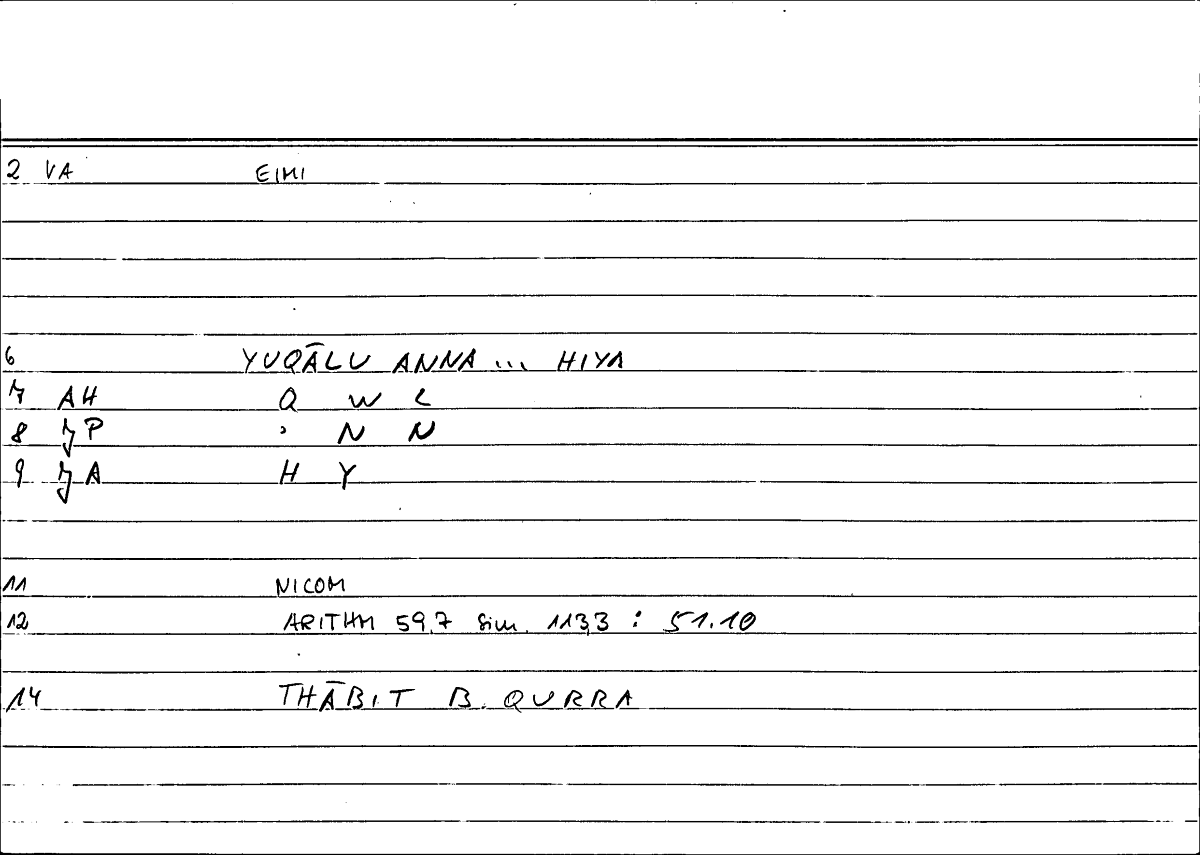 2 VA EIMI
6 YUQĀLU ANNA ... HIYA
7 AH Q W L
8 JP ʾ N N
9 JA H Y
11 NICOM
12 ARITHM 59,7 sim. 113,3 : 51.10
14 THĀBIT B. QURRA